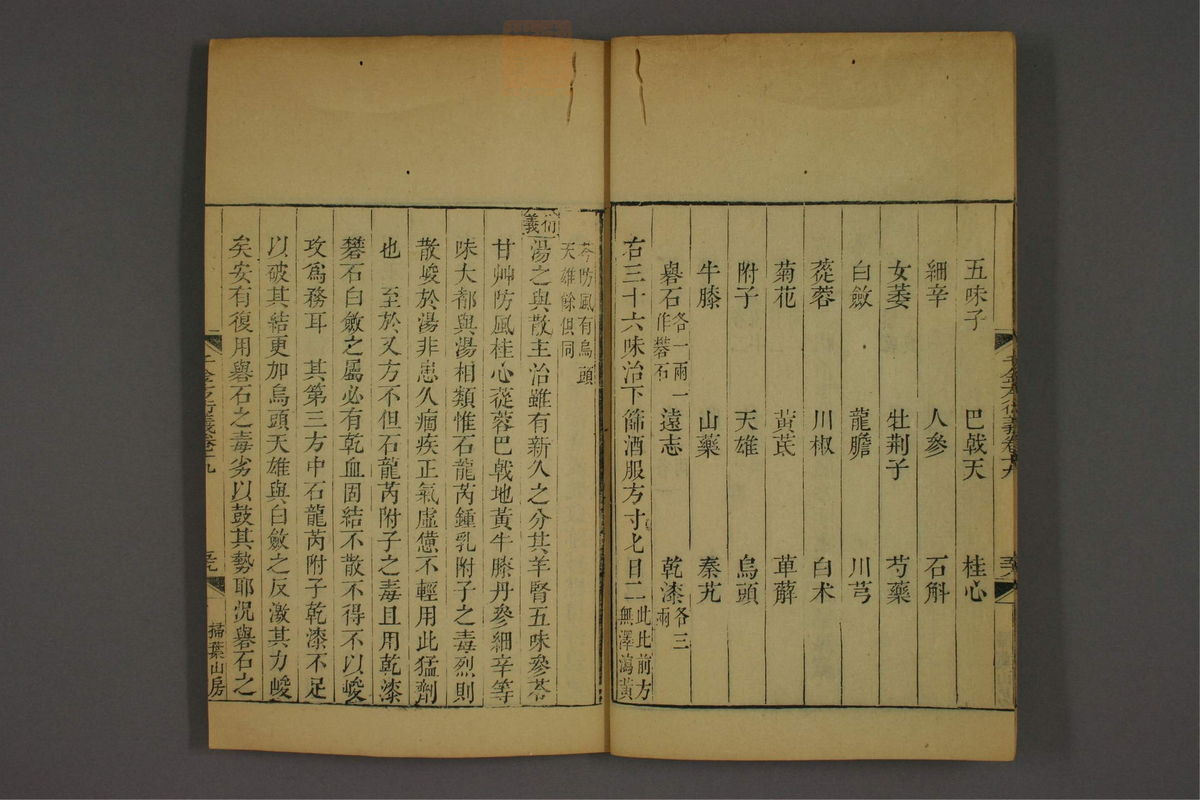 五味子 巴戟天 桂心
細辛 人參 石斛
女萎 牡荆子 芍藥
白斂 龍膽 川芎
蓯蓉 川椒 白术
菊花 黃芪 萆薢
附子 天雄 烏頭
牛膝 山藥 秦艽
礜石各一兩一作礬石 遠志 乾漆各三兩
右三十六味治下篩酒服方寸匕日二此比前方無澤瀉黃
芩防風有烏頭天雄餘俱同
衍義
湯之與散主治雖有新久之分其羊腎五味參苓
甘艸防風桂心蓯蓉巴戟地黃牛膝丹參細辛等
味大都與湯相類惟石龍芮鍾乳附子之毒烈則
散峻於湯非患久痼疾正氣虛憊不輕用此猛劑
也 至於又方不但石龍芮附子之毒且用乾漆
礬石白斂之屬必有乾血固結不散不得不以峻
攻爲務耳 其第三方中石龍芮附子乾漆不足
以破其結更加烏頭天雄與白斂之反激其力峻
矣安有復用礜石之毒劣以鼓其勢耶況礜石之
千金方衍義卷十九
掃葉山房